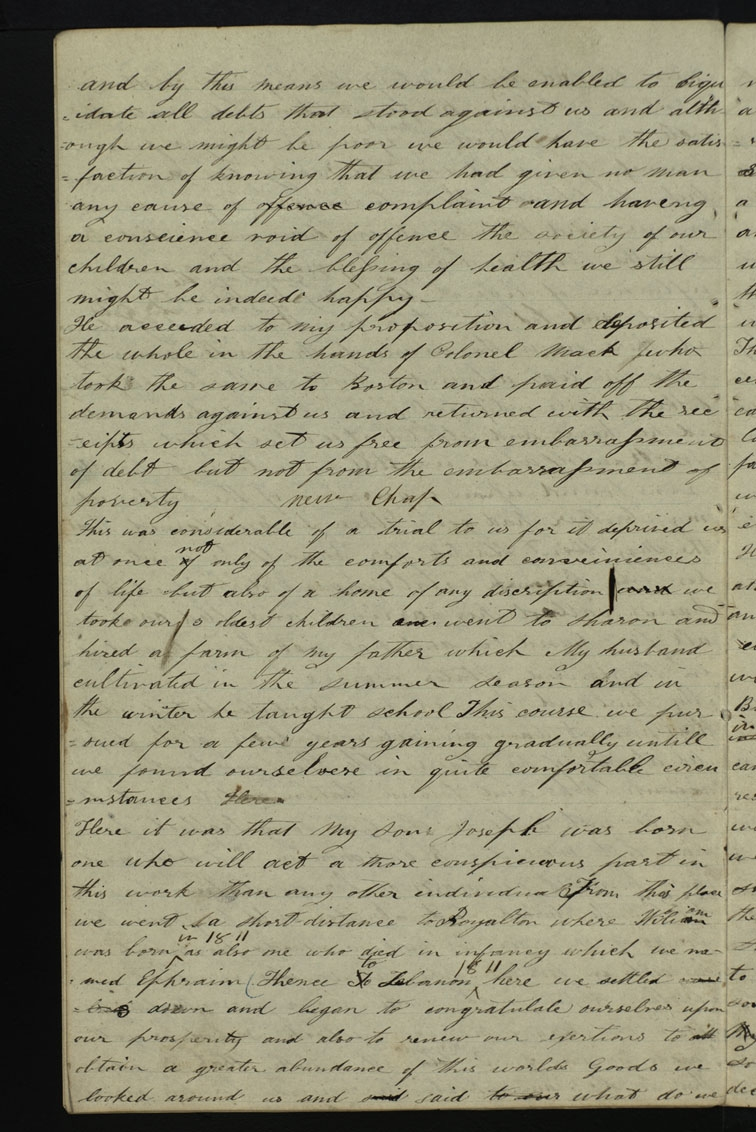 and by this means we would be enabled to liqu
=idate all debts that stood against us and alth
=ough we might be poor we would have the satis
=faction of knowing that we had given no man
any cause of offence complaint and haveng
a conscience void of offence the society of our
children and the blessing of health we still
might be indeed happy—
He acceeded to my proposition and deposited
the whole in the hands of Colonel Mack who
took the same to Boston and paid off the
demands against us and returned with the rec
=eipts which set us free from embarrassment
of debt but not from the embarrassment of
poverty new Chap
This was considerable of a trial to us for it deprived us
at once not only of the comforts and conveiniences
of life but also of a home of any discription we
took our oldest children went to Sharon and
hired a farm of my father which My husband
cultivated in the summer season and in
the winter he taught school This course we pur
=sued for a few years gaining gradually untill
we found ourselvers in quite comfortable circu
=mstances Here
Here it was that My Son Joseph was born
one who will act a more conspicuous part in
this work than any other individual From this place
we went a short distance to Royalton where William
was born in 1811 as also one who died in infancy which we na=
=med Ephraim Thence to Lebanon 1811 here we settled
down and began to congratulate ourselves upon
our prosperity and also to renew our exertions to
obtain a greater abundance of this worlds Goods we
looked around us and said what do we